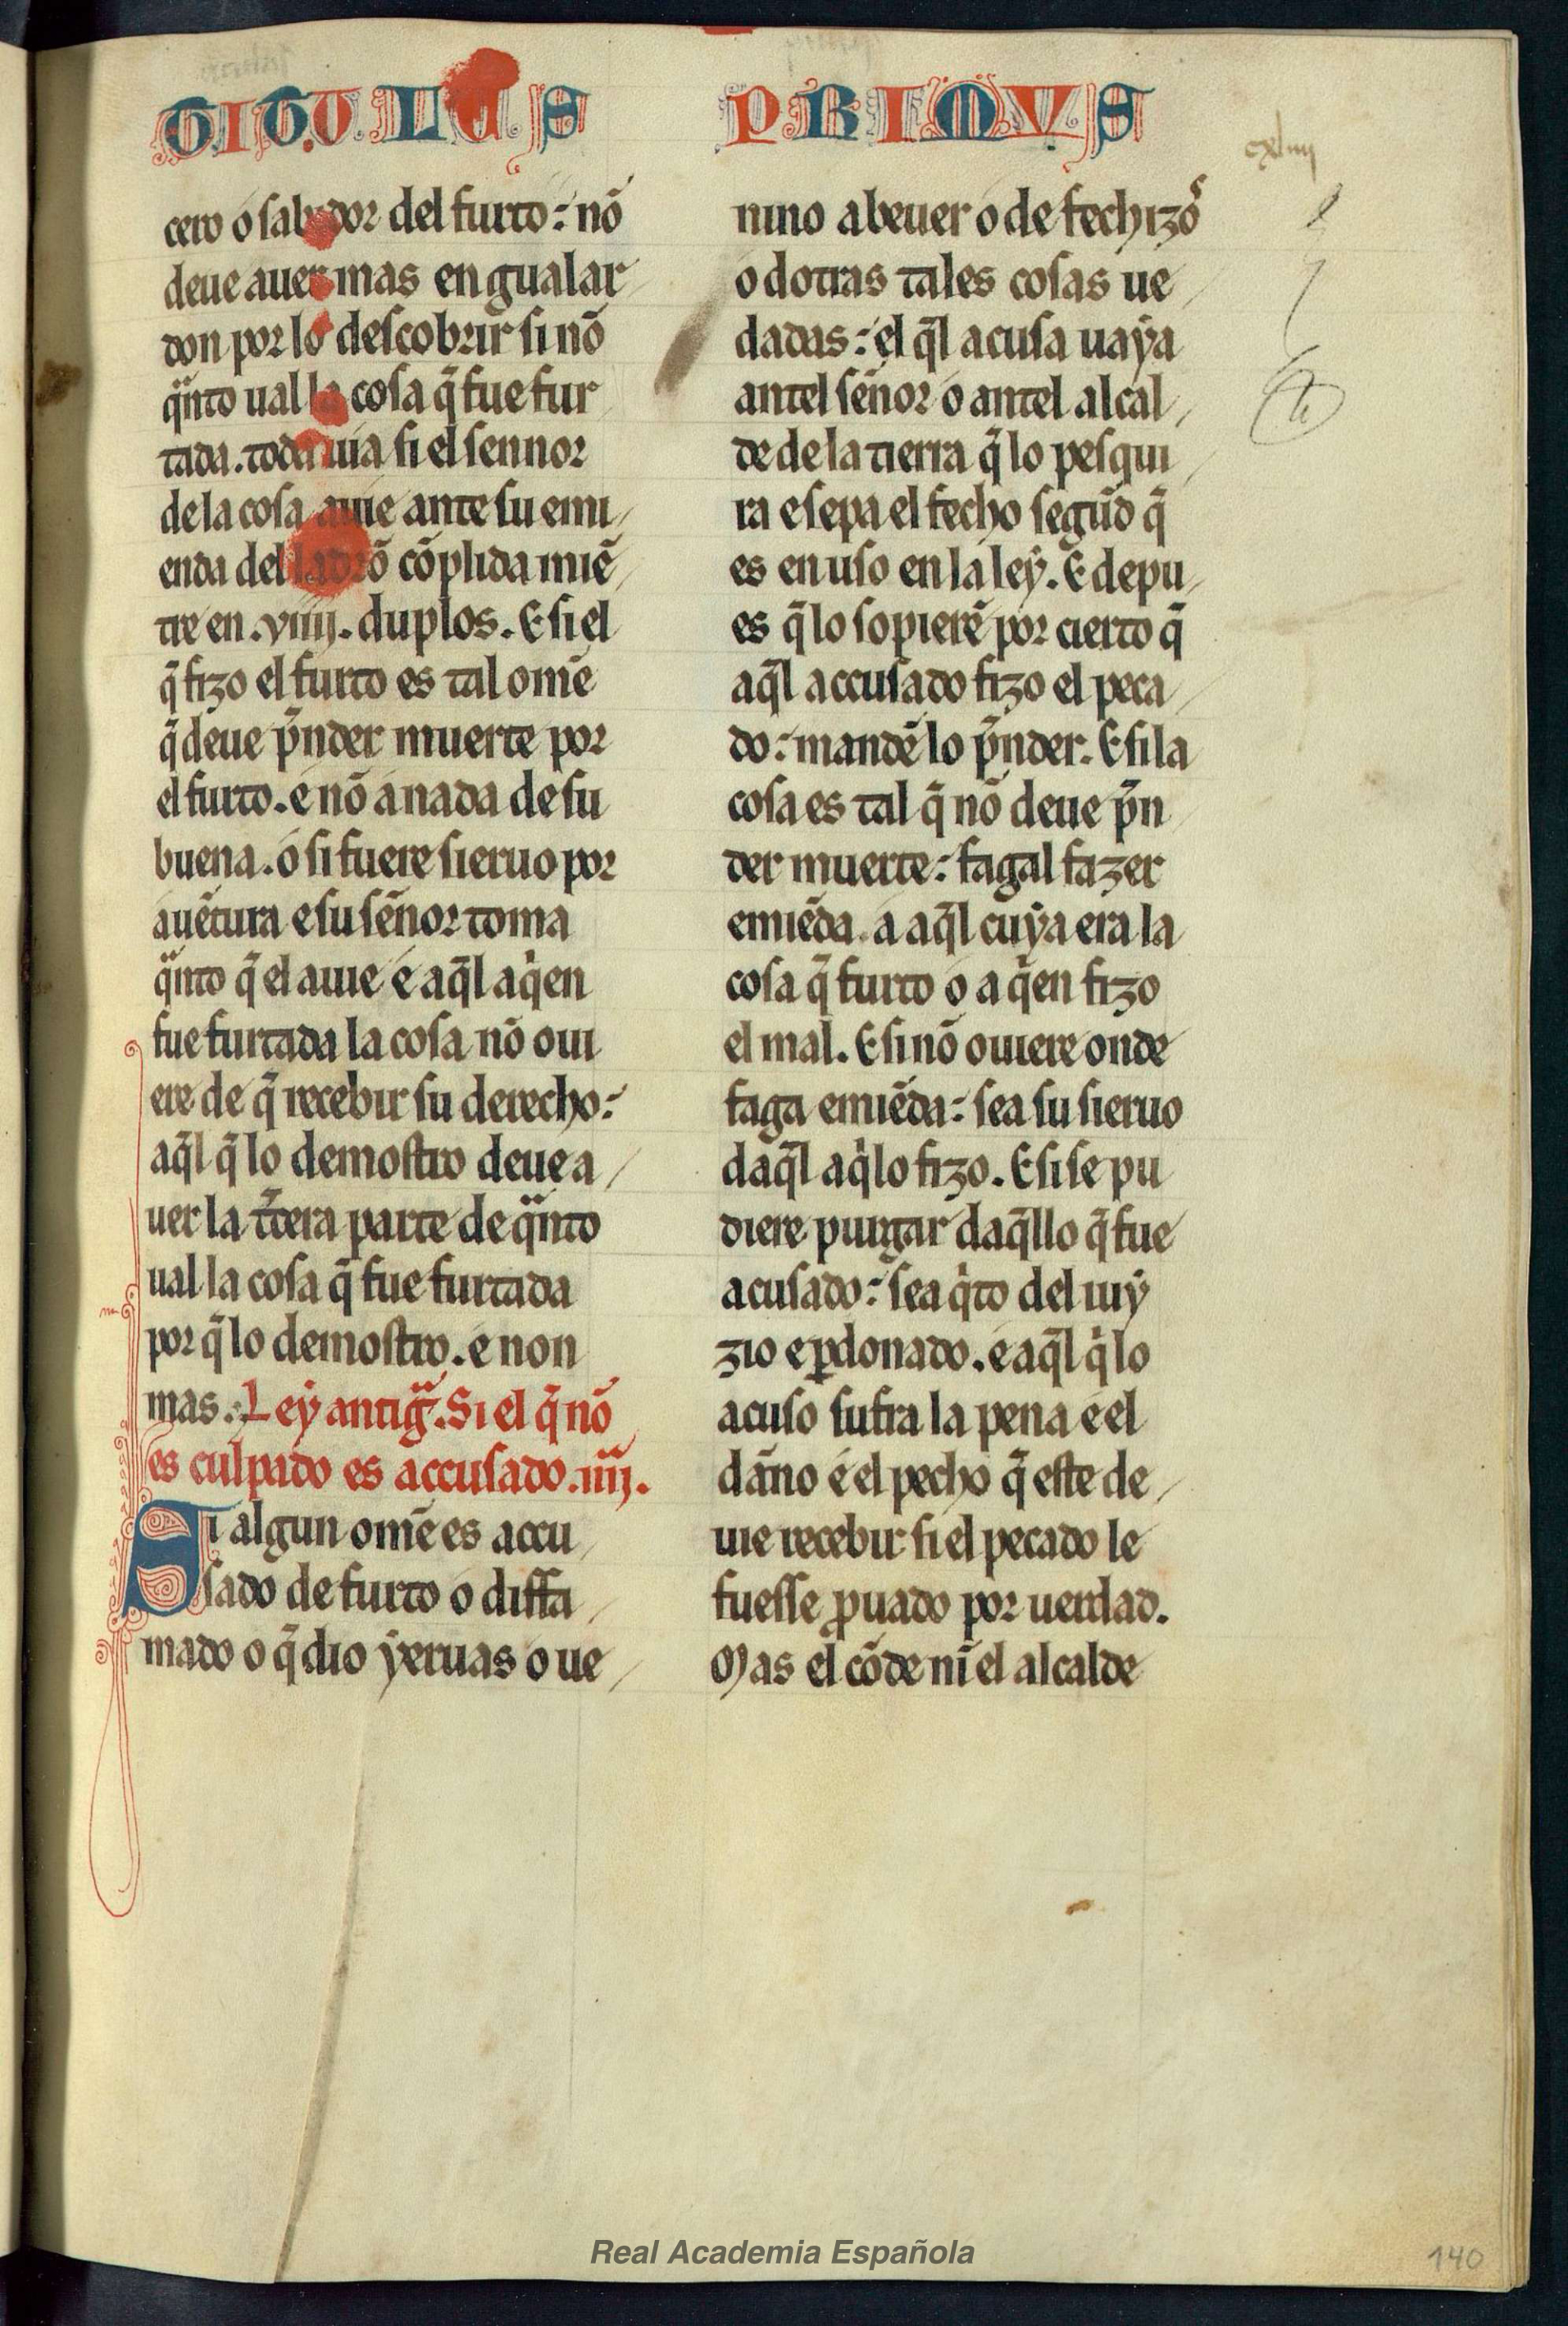 TITULUS PRIMVS
cxliiii
cero o sabidor del furto: nõ
deue auer mas en gualar
don por lo descobrir si nõ
qͣnto ual la cosa q̃ fue fur
tada. toda uia si el sennor
de la cosa auie ante su emi
enda del ladrõ cõplida miẽ
tre en .viiij. duplos. E si el
q̃ fizo el furto es tal omẽ
q̃ deue p̃nder muerte por
el furto. e nõ a nada de su
buena. o si fuere sieruo por
auẽtura e su sẽnor toma
qͣnto q̃ el auie e aq̃l aqͥen
fue furtada la cosa nõ oui
ere de q̃ recebir su derecho:
aq̃l q̃ lo demostro deue a
uer la t̃cera parte de qͣnto
ual la cosa q̃ fue furtada
por q̃ lo demostro. e non
mas. Ley antigͣ. Si el q̃ nõ
es culpado es accusado .iiij.
Si algun omẽ es accu
sado de furto o diffa
mado o q̃ dio yeruas o ue
nino a beuer o de fechizoˢ
o dotras tales cosas ue
dadas: el q̃l acusa uaya
antel sẽnor o antel alcal
de de la tierra q̃ lo pesqui
ra e sepa el fecho segũd q̃
es en uso en la ley. E depu
es q̃ lo sopierẽ por cierto q̃
aq̃l accusado fizo el peca
do: mandẽ lo p̃nder. E si la
cosa es tal q̃ nõ deue p̃n
der muerte: fagal fazer
emiẽda. a aq̃l cuya era la
cosa q̃ furto o a qͥen fizo
el mal. E si nõ ouiere onde
faga emiẽda: sea su sieruo
daq̃l aqͥ lo fizo. E si se pu
diere purgar daq̃llo q̃ fue
acusado: sea qͥto del iuy
zio e ꝑdonado. e aq̃l qͥ lo
acuso sufra la pena e el
dãno e el pecho q̃ este de
uie recebir si el pecado le
fuesse ꝓuado por uerdad.
Mas el cõde nĩ el alcalde
Real Academia Española
140